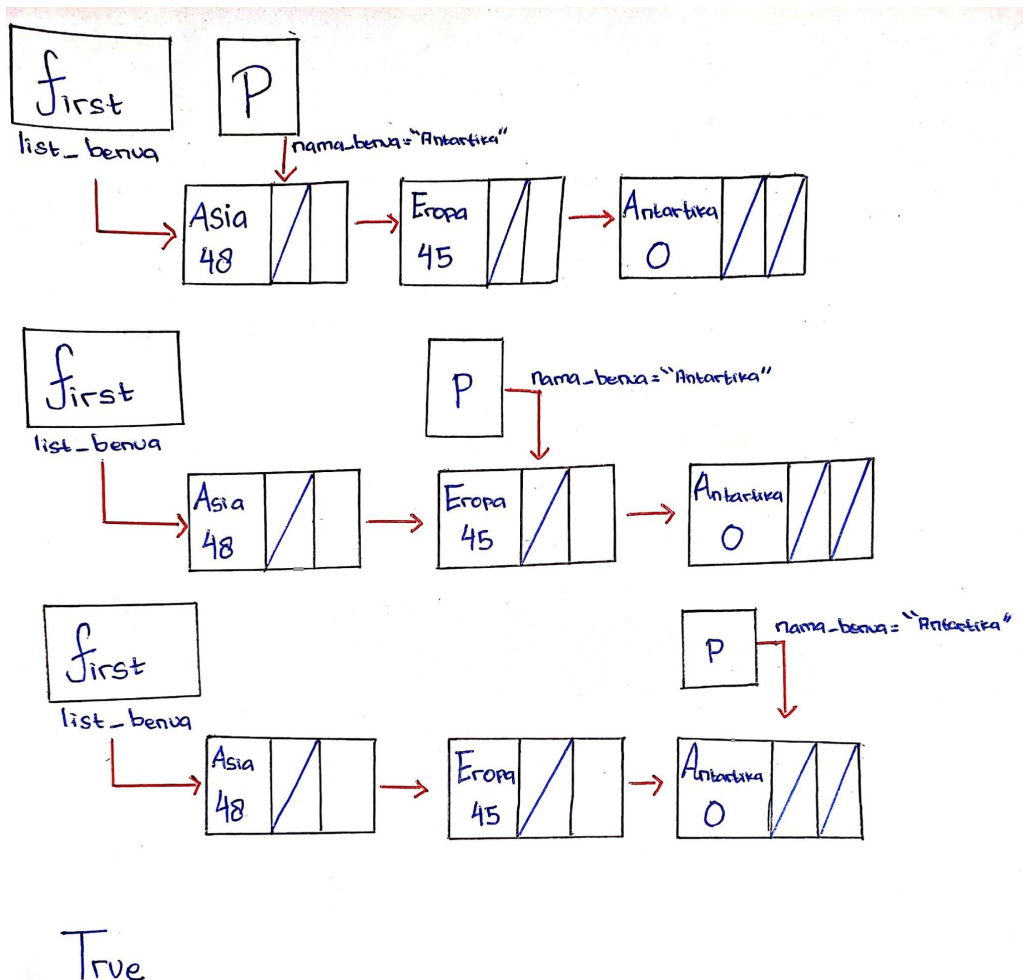 first P
list_benua nama_benua="Antartika"
Asia Eropa Antartika
48 45 0
first P nama_benua="Antartika"
list_benua
Asia Eropa Antartika
48 45 0
first P nama_benua="Antartika"
list_benua
Asia Eropa Antartika
48 45 0
True